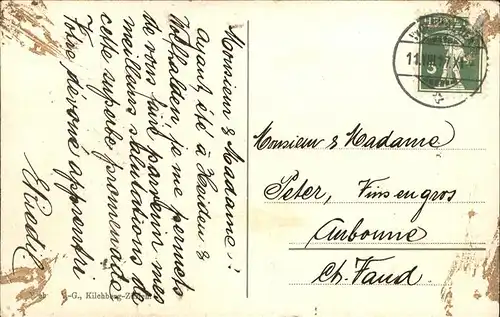 Monsieur & Madame!
Ayant été à Heiden &
Wolfhalden je me permets
de vous faire parvenir mes
meilleurs salutations de
cette superbe promenade
Votre dévoué apprenti
E. Riedl.
Monsieur & Madame
Peter, Vins en gros
Aubonne
Ct. Vaud.
-G., Kilchberg-Zürich
5